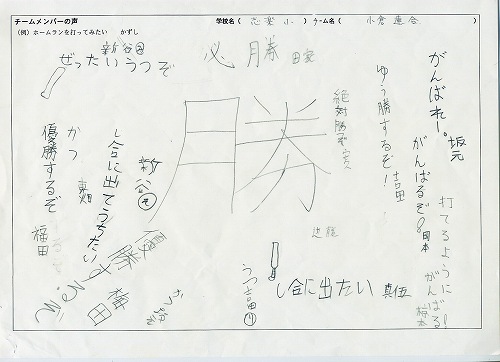 チームメンバーの声
学校名（志楽小）チーム名（小倉連合）
（例）ホームランを打ってみたい　かずし
必勝
がんばれー。
坂元
ゆう勝するぞ！
吉田
がんばるぞ
打てるように
がんばる
絶対勝つぞ
勝
新谷
ぜったいうつぞ
し合に出てうちたい
かつ
東畑
優勝するぞ
福田
優勝
梅田
近藤
うつ
吉田
し合に出たい
真伍